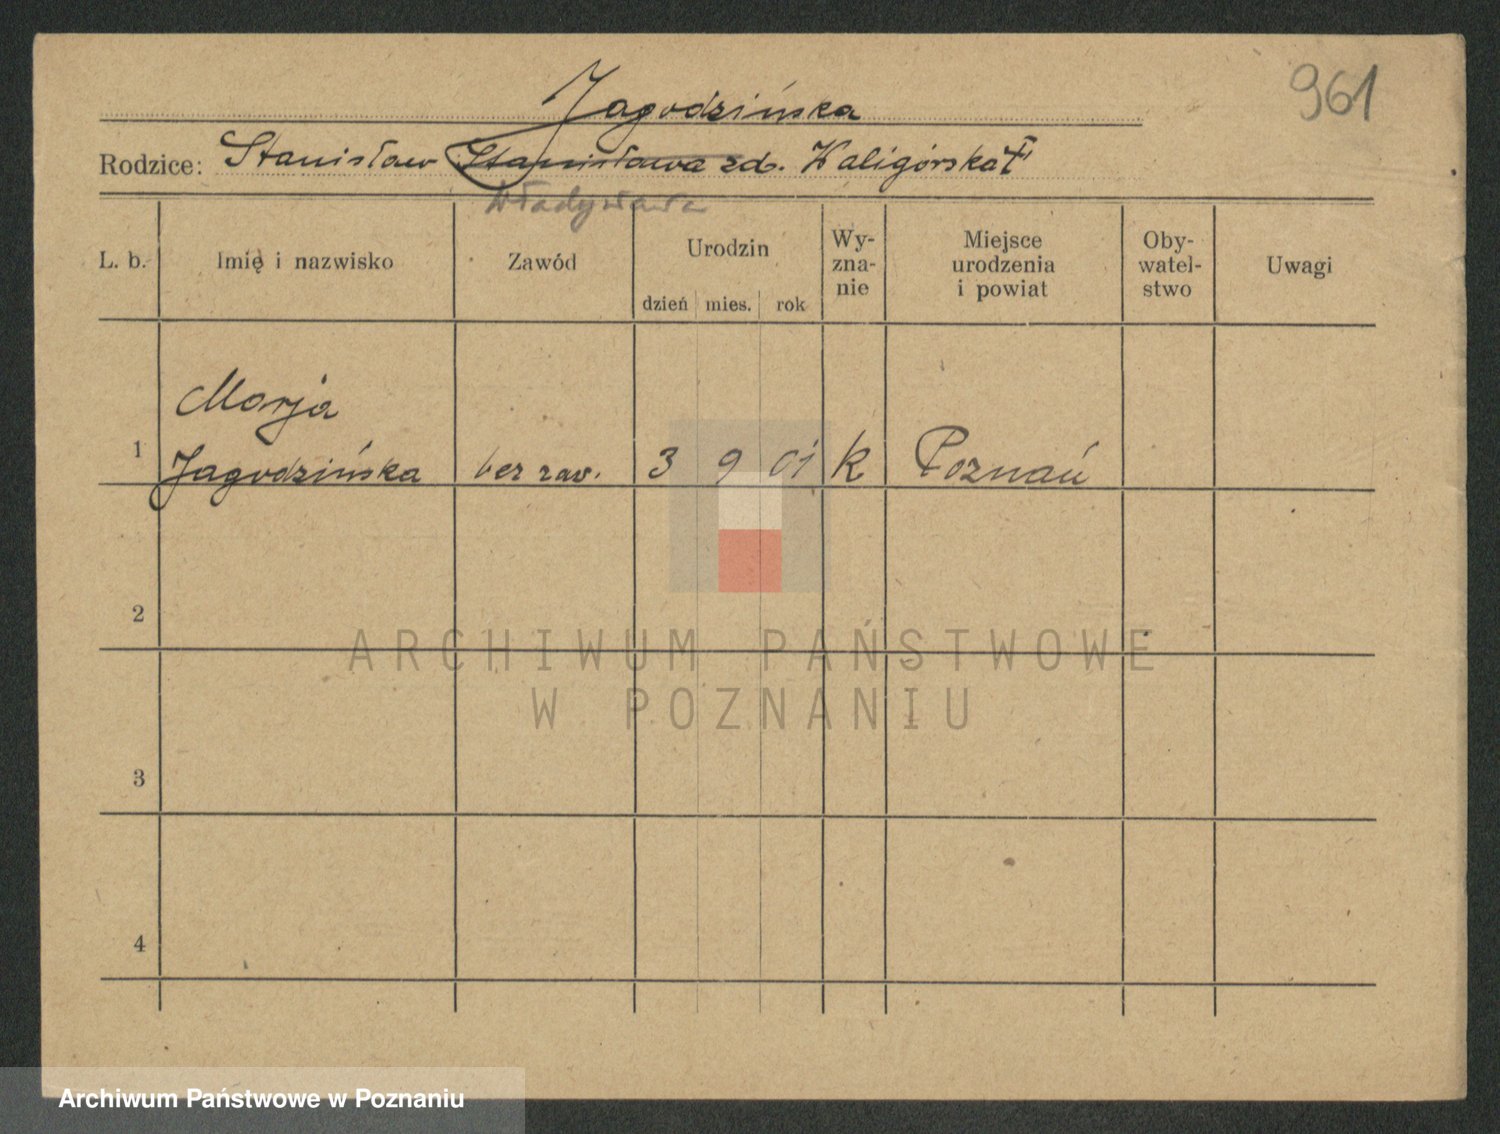 961
Jagodzińska
Rodzice: Stanisław Stanisława zd. Kaligórska
Władysława
L. b. Imię i nazwisko Zawód Urodzin dzień mies. rok Wy-zna-nie Miejsce urodzenia i powiat Oby-watel-stwo Uwagi
Marja
1 Jagodzińska bez zaw. 3 9 01 k Poznań
2
ARCHIWUM PAŃSTWOWE
W POZNANIU
3
4
Archiwum Państwowe w Poznaniu